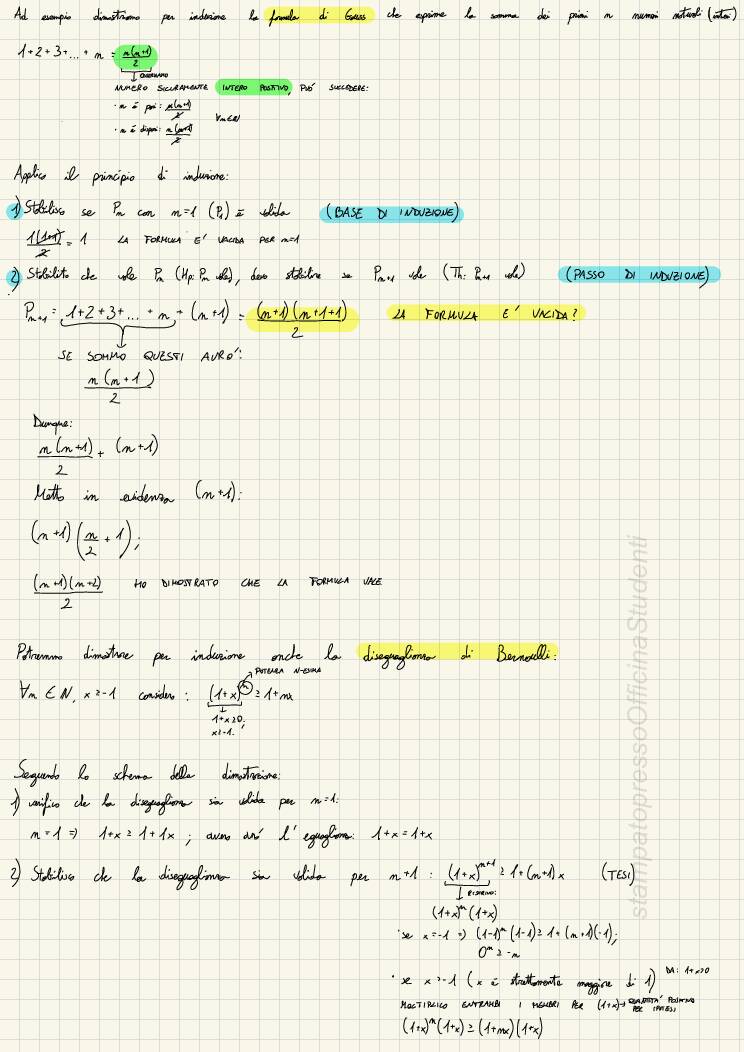 Ad esempio dimostriamo per induzione la formula di Gauss che esprime la somma dei primi n numeri naturali (interi)
1+2+3+...+n = n(n+1)/2
OSSERVIAMO
NUMERO SICURAMENTE INTERO POSITIVO, PUÒ SUCCEDERE:
· n è pari: n(n+1)/2
∀n∈N
· n è dispari: n(n+1)/2
Applico il principio di induzione:
1) Stabilisco se Pn con n=1 (P1) è valida (BASE DI INDUZIONE)
1(1+1)/2 = 1 LA FORMULA E' VALIDA PER n=1
2) Stabilito che vale Pn (Hp: Pn vale), devo stabilire se Pn+1 vale (Th: Pn+1 vale) (PASSO DI INDUZIONE)
Pn+1 = 1+2+3+...+n+(n+1) = (n+1)(n+1+1)/2 LA FORMULA E' VALIDA?
SE SOMMO QUESTI AVRO':
n(n+1)/2
Dunque:
n(n+1)/2 + (n+1)
Metto in evidenza (n+1):
(n+1)(n/2 + 1);
(n+1)(n+2)/2 HO DIMOSTRATO CHE LA FORMULA VALE
Potremmo dimostrare per induzione anche la diseguaglianza di Bernoulli:
POTENZA N-ESIMA
∀n∈N, x≥-1 considero: (1+x)^n ≥ 1+nx
1+x≥0;
x≥-1.
Seguendo lo schema della dimostrazione:
1) verifico che la diseguaglianza sia valida per n=1:
n=1 => 1+x ≥ 1+1x ; avremo l'eguaglianza: 1+x=1+x
2) Stabilisco che la diseguaglianza sia valida per n+1: (1+x)^n+1 ≥ 1+(n+1)x (TESI)
RISCRIVO:
(1+x)^n (1+x)
· se x=-1 => (1-1)^n (1-1) ≥ 1+(n+1)(-1);
0^n ≥ -n
· se x>-1 (x è strettamente maggiore di 1) DA: 1+x>0
MOLTIPLICO ENTRAMBI I MEMBRI PER (1+x) → QUANTITA' POSITIVA
PER IPOTESI
(1+x)^n (1+x) ≥ (1+nx)(1+x)
stampatopressoOfficinaStudenti